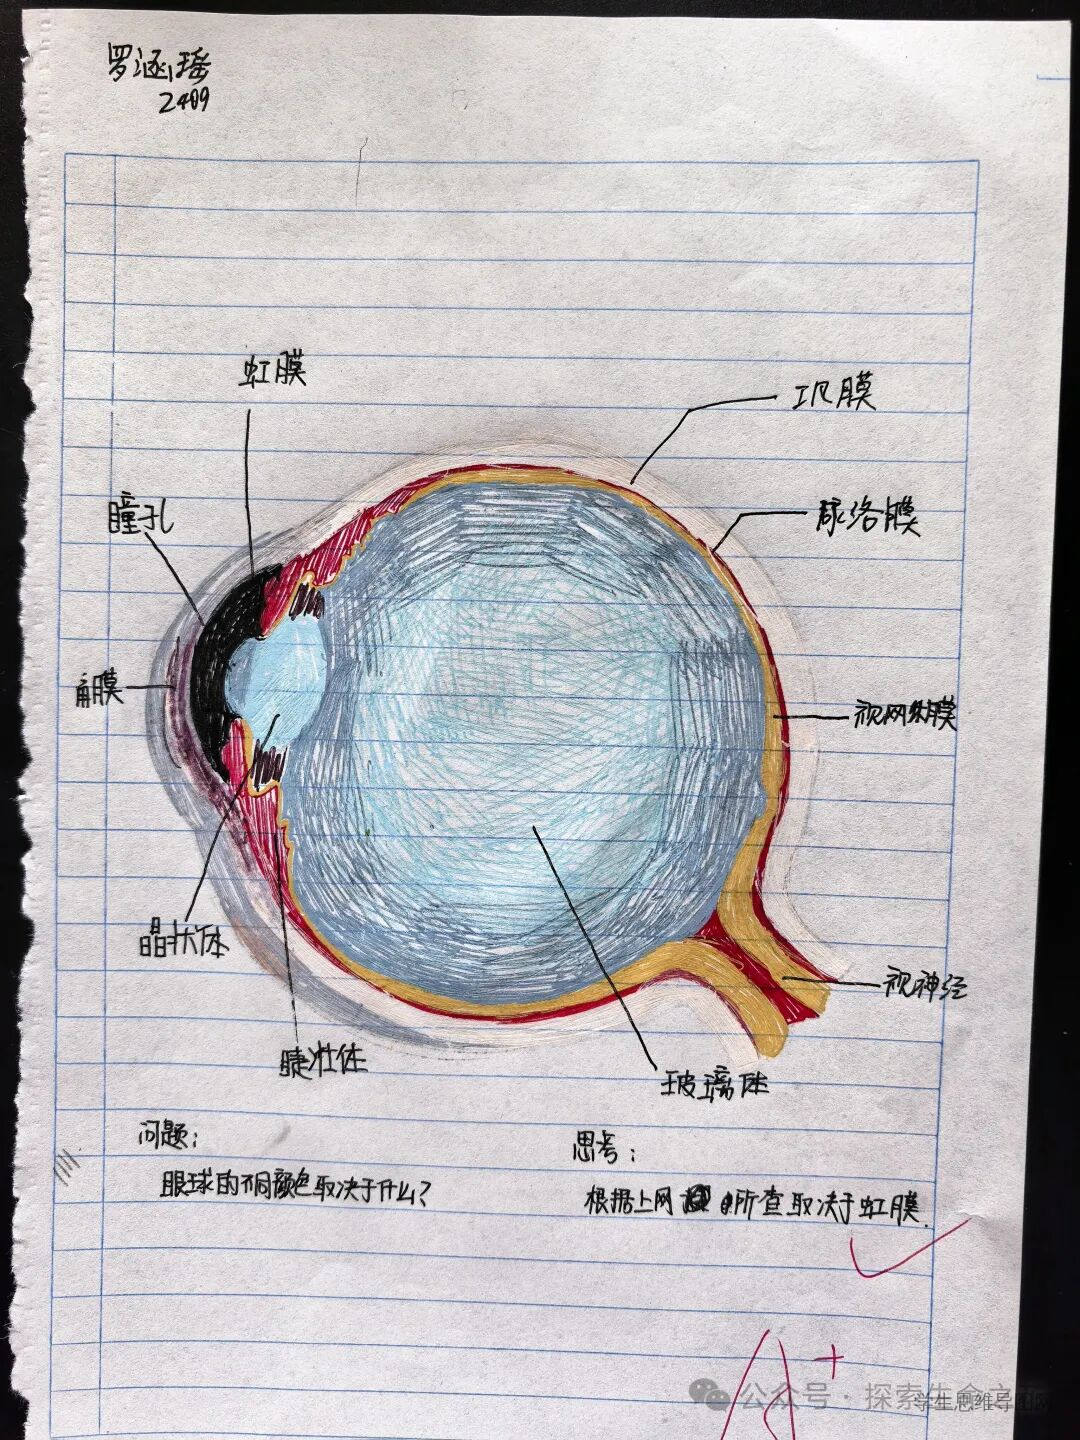 罗涵瑶
2409
虹膜
巩膜
瞳孔
脉络膜
角膜
视网膜
晶状体
视神经
睫状体
玻璃体
问题：
思考：
眼球的不同颜色取决于什么？
根据上网所查取决于虹膜.
A+
公众号·探索生命之
学生思维导图网